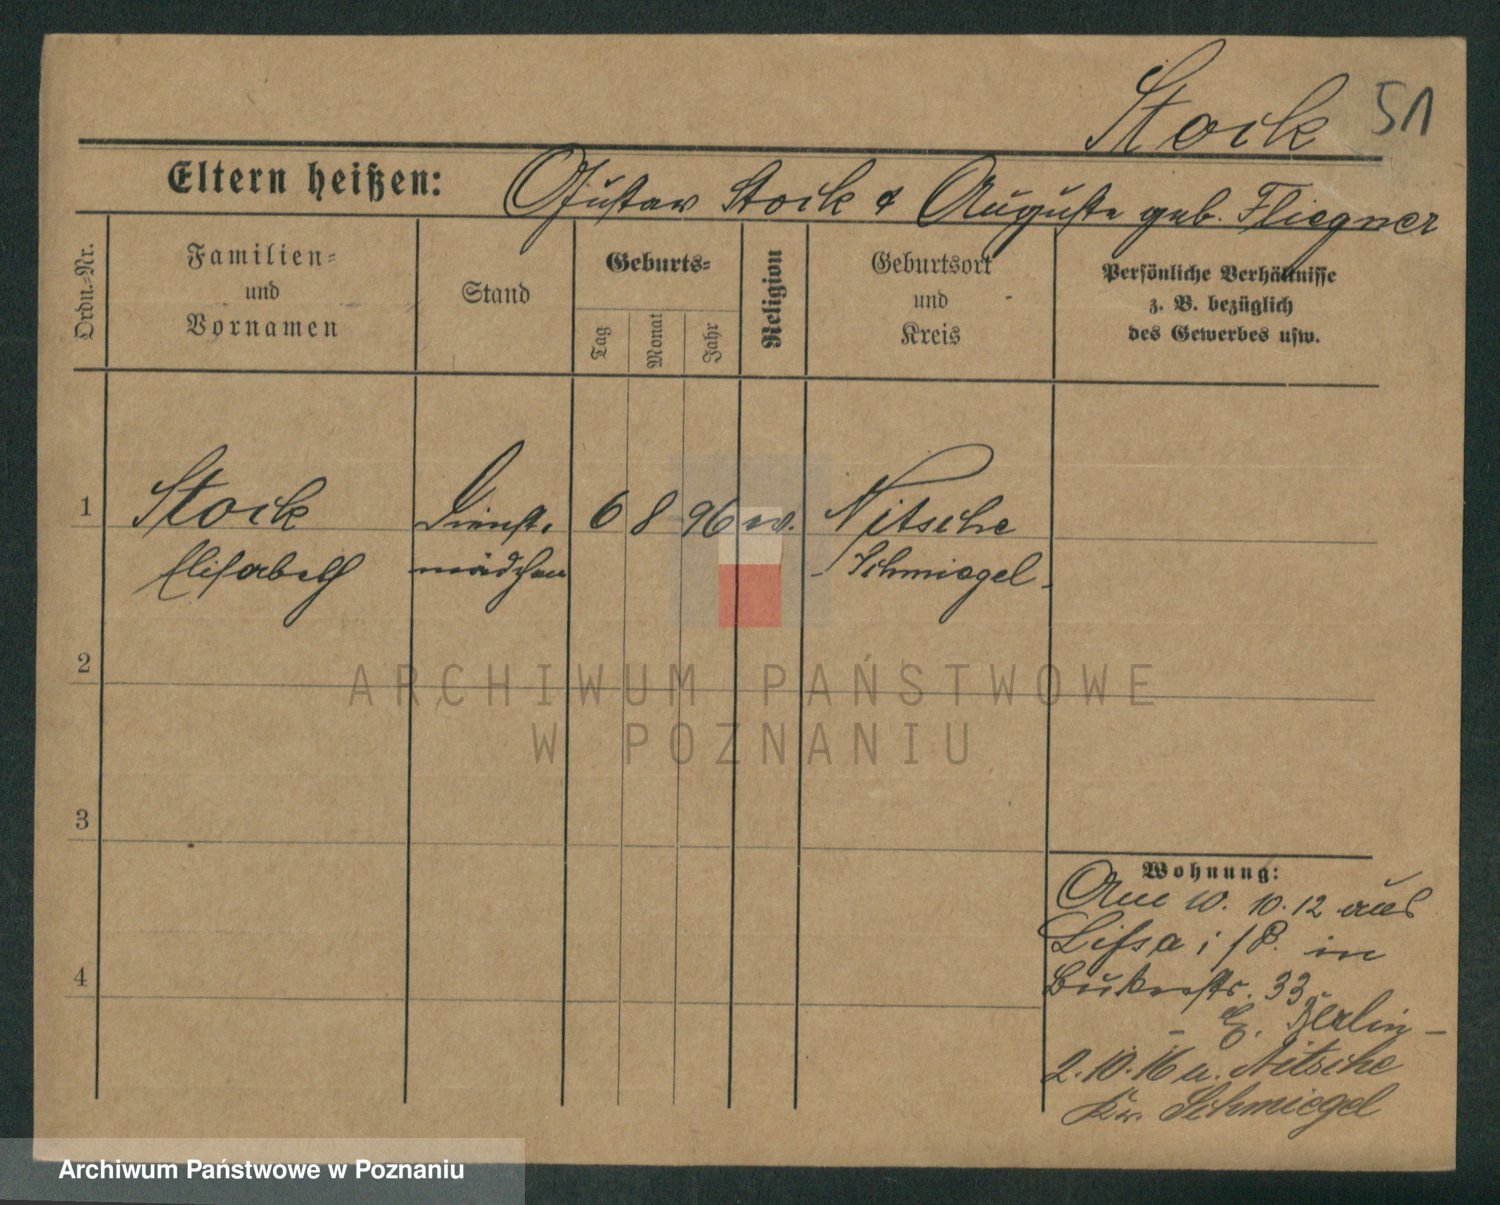 Stock 51
Eltern heißen: Gustav Stock & Auguste geb. Fliegner
Ordn.=Nr.
Familien=
und
Vornamen
Stand
Geburts=
Tag
Monat
Jahr
Religion
Geburtsort
und
Kreis
Persönliche Verhältnisse
z. B. bezüglich
des Gewerbes usw.
1 Stock Dienst- 6 8 96 ev. Nitsche
Elisabeth mädchen Schmiegel
2
3
4
Wohnung:
Am 10. 10. 12 aus
Lissa i/P. in
Bukerstr. 33
Berlin
2.10.16 n. Nitsche
Kr. Schmiegel
ARCHIWUM PAŃSTWOWE
W POZNANIU
Archiwum Państwowe w Poznaniu